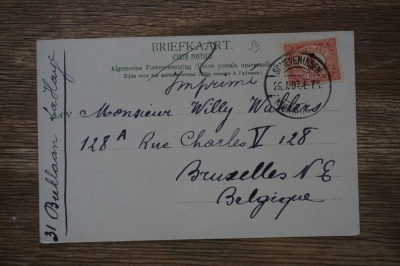 BRIEFKAART.
(CARTE POSTALE)
Algemeene Postvereeniging (Union postale universelle)
Zijde voor het adres bestemd (Côté réservé à l'adresse)
59
SCHEVENINGEN
Imprimé
Monsieur Willy
128 A Rue Charles V 128
Bruxelles N E
Belgique
31 La Haye